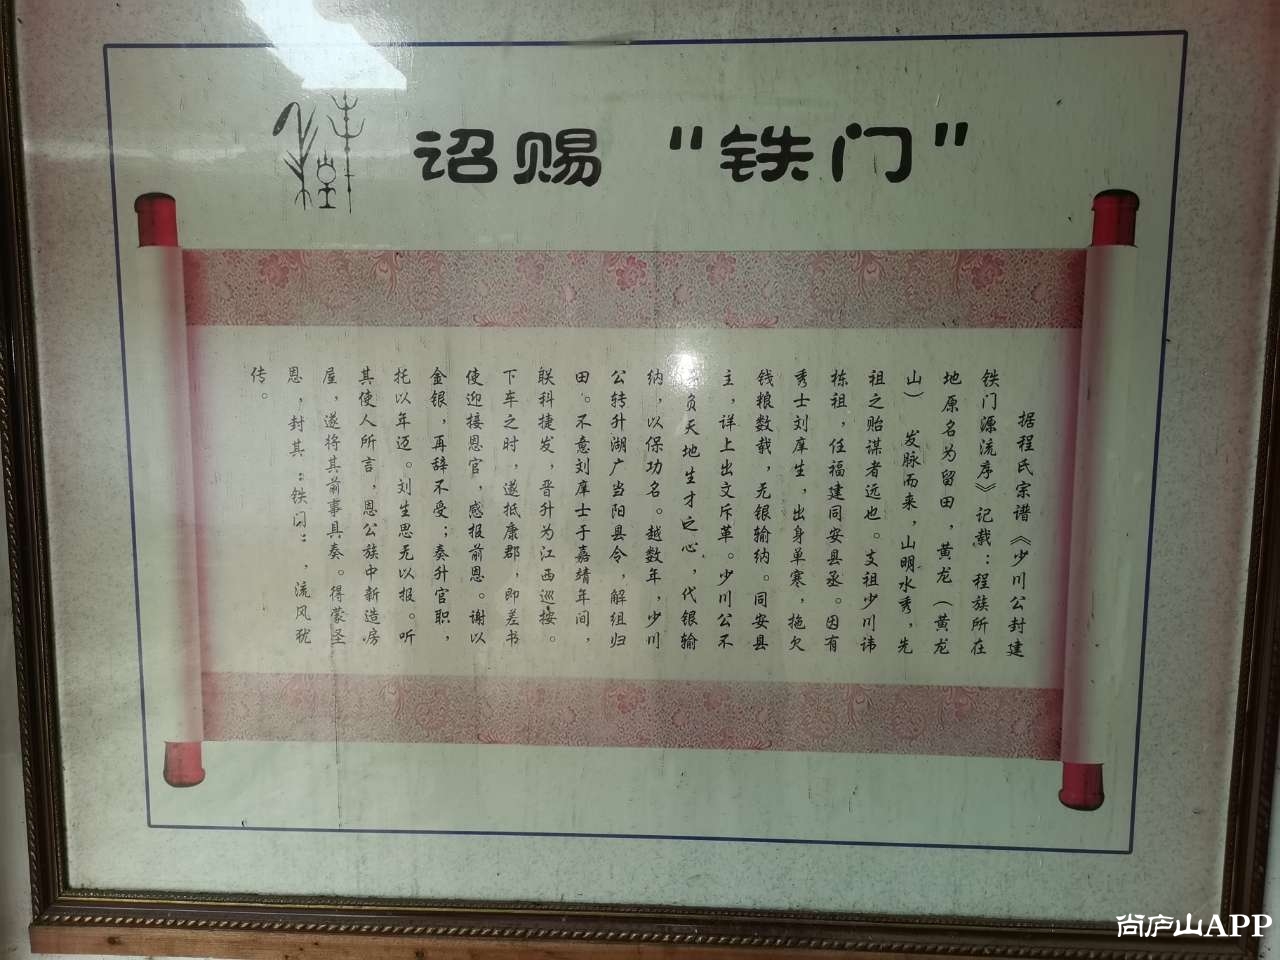 诏赐“铁门”
据程氏宗谱《少川公封建
铁门源流序》记载：程族所在
地原名为留田，黄龙（黄龙
山）发脉而来，山明水秀，先
祖之贻谋者远也。支祖少川讳
栋祖，任福建同安县丞。因有
秀士刘庠生，出身单寒，拖欠
钱粮数载，无银输纳。同安县
主，详上出文斥革。少川公不
负天地生才之心，代银输
纳，以保功名。越数年，少川
公转升湖广当阳县令，解组归
田。不意刘庠士于嘉靖年间，
联科捷发，晋升为江西巡按。
下车之时，遂抵康郡，即差书
使迎接恩官，感报前恩。谢以
金银，再辞不受；奏升官职，
托以年迈。刘生思无以报。听
其使人所言，恩公族中新造房
屋，遂将其前事具奏。得蒙圣
恩，封其：铁门：，流风犹
传。
尚庐山APP